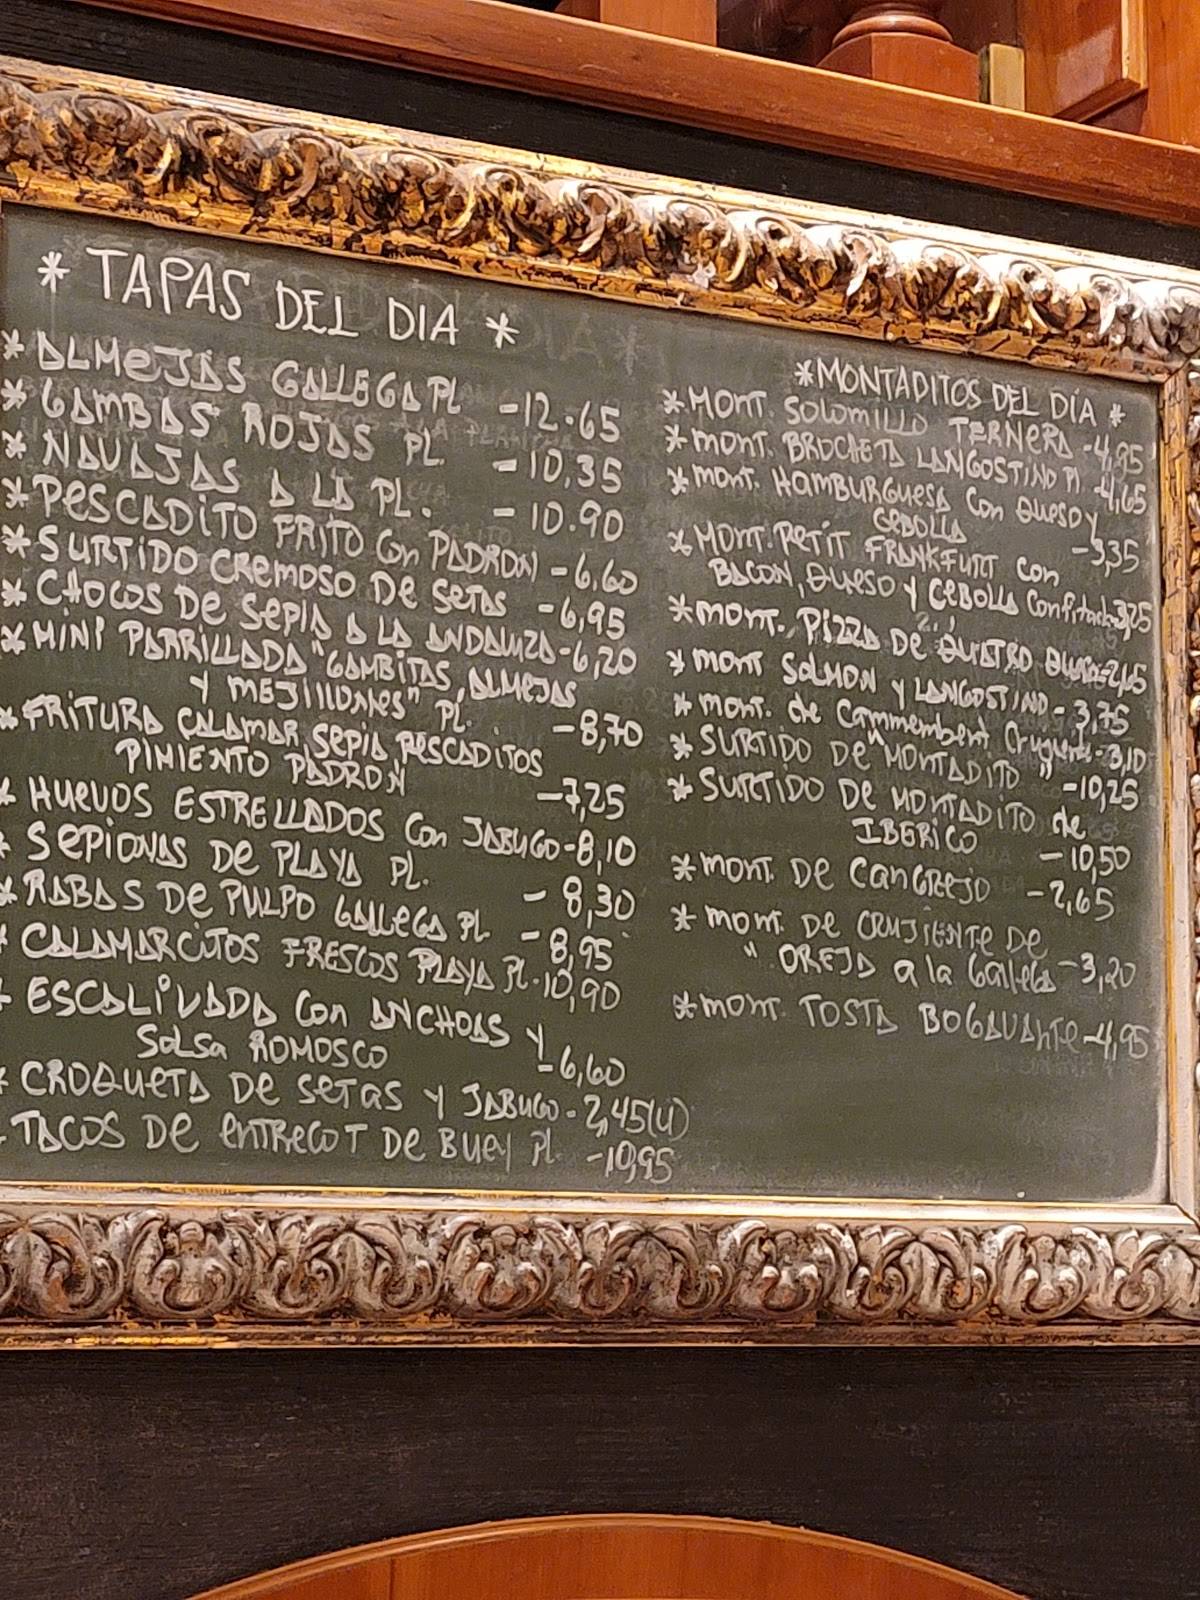 * TAPAS DEL DIA *
* ALMEJAS GALLEGA PL -12.65
* GAMBAS ROJAS PL. -10,35
* NAVAJAS A LA PL. -10.90
* PESCADITO FRITO Con PADRON -6.60
* SURTIDO CREMOSO DE SETAS -6,95
* CHOCOS DE SEPIA A LA ANDALUZA -6,20
* MINI PARRILLADA "GAMBITAS, ALMEJAS
Y MEJILLONES" PL. -8,70
* FRITURA CALAMAR, SEPIA, PESCADITOS
PIMIENTO PADRON -7,25
* HUEVOS ESTRELLADOS Con JABUGO -8,10
* SEPIONAS DE PLAYA PL. -8,30
* RABAS DE PULPO GALLEGA PL. -8,95
* CALAMARCITOS FRESCOS PLAYA PL. -10,90
* ESCALIVADA Con ANCHOAS Y
SALSA ROMOSCO -6,60
* CROQUETA DE SETAS Y JABUGO - 2,45(U)
- TACOS DE ENTRECOT DE BUEY PL -10,95
*MONTADITOS DEL DÍA *
* MONT. SOLOMILLO TERNERA -4,95
* MONT. BROCHETA LANGOSTINO Pl -4,65
* MONT. HAMBURGUESA Con QUESO Y
CEBOLLA -3,35
* MONT. PETIT FRANKFURT con
BACON, QUESO Y CEBOLLA Confitada
* MONT. PIZZA DE QUATRO
* MONT SALMON Y LANGOSTINO - 3,75
* MONT. de Cammembert -3,10
* SURTIDO DE "MONTADITO" -10,25
* SURTIDO DE MONTADITO de
IBERICO -10,50
* MONT. DE CANGREJO -2,65
* MONT. DE CRUJIENTE DE
" OREJA a la Gallega -3,20
* MONT. TOSTA BOGAVANTE -4,95